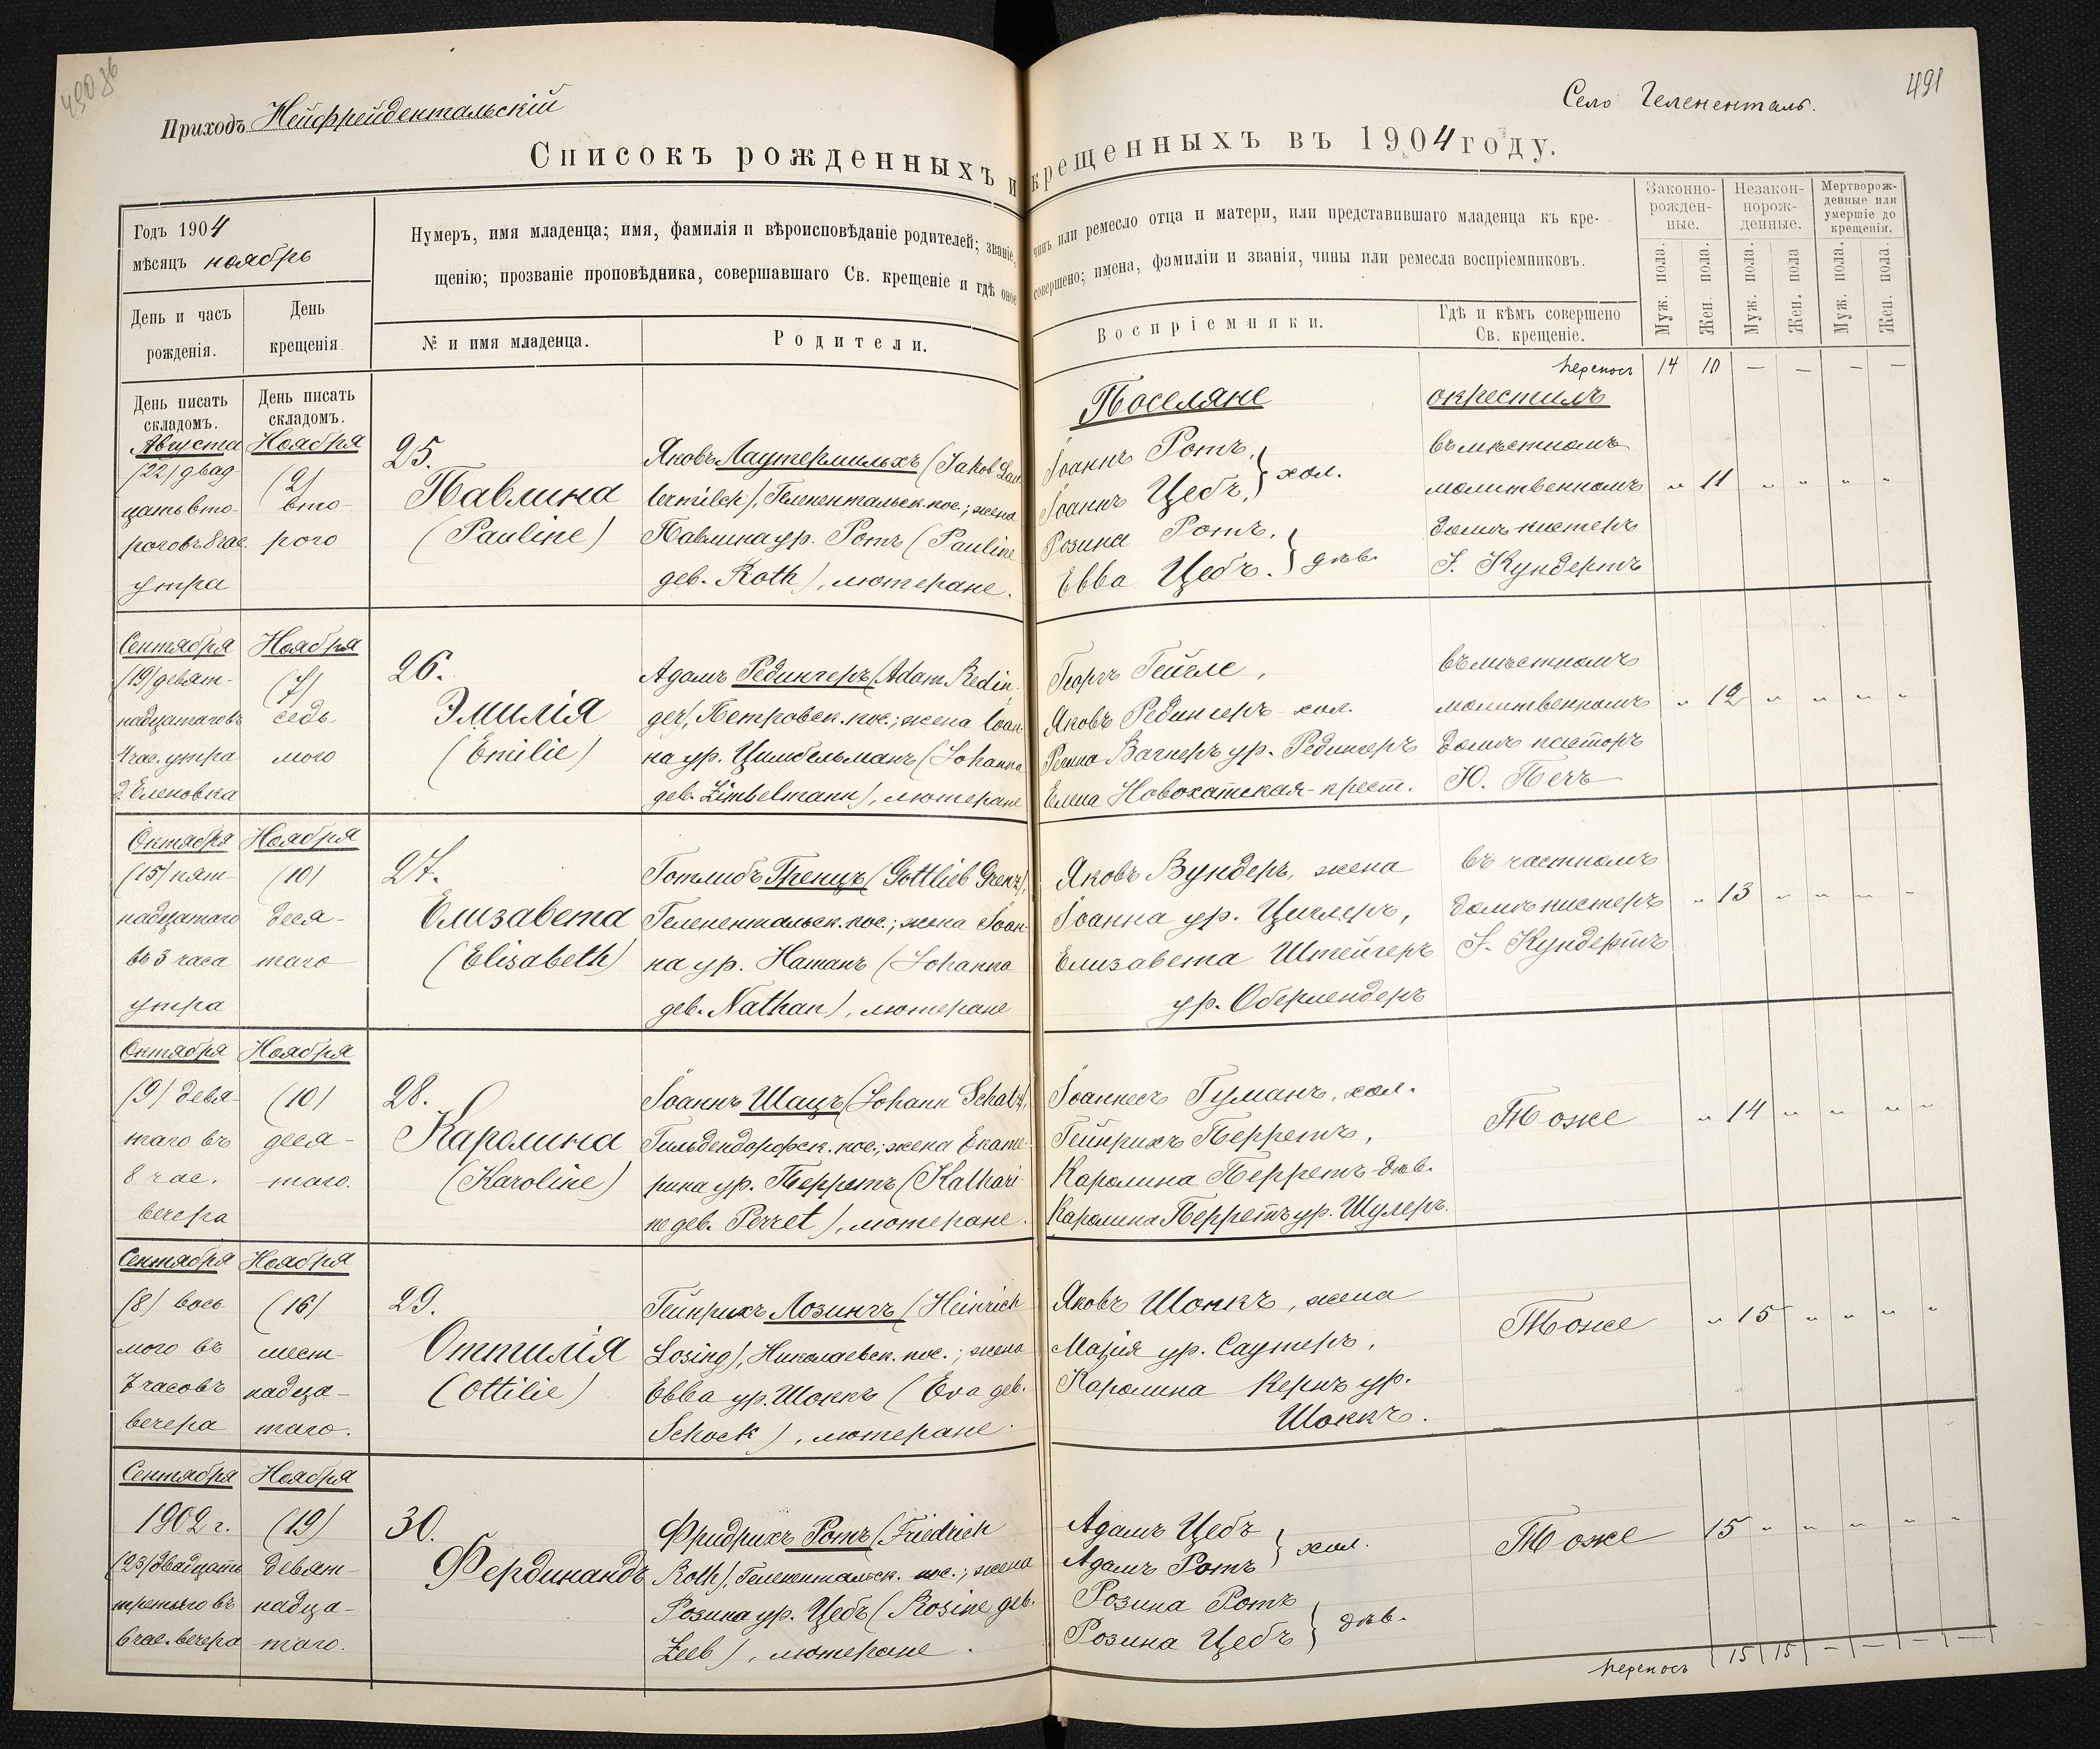 490 об
Приходъ Нейфрейдентальскій
Село Гелененталь.
491
Списокъ рожденныхъ и крещенныхъ въ 1904 году.
Годъ 1904
мѣсяцъ ноябрь
День и часъ рожденія.
День крещенія
Нумеръ, имя младенца; имя, фамилія и вѣроисповѣданіе родителей; званіе, чинъ или ремесло отца и матери, или представившаго младенца къ кре-
щенію; прозваніе проповѣдника, совершавшаго Св. крещеніе и гдѣ оное совершено; имена, фамиліи и званія, чины или ремесла воспріемниковъ.
№ и имя младенца.
Родители.
Воспріемники.
Гдѣ и кѣмъ совершено
Св. крещеніе.
Законно-
рожден-
ные.
Незакон-
норож-
денные.
Мертворож-
денные или
умершіе до
крещенія.
Муж. пола.
Жен. пола.
Муж. пола.
Жен. пола
Муж. пола.
Жен. пола.
переносъ 14 10 — — — —
День писать
складомъ.
День писать
складомъ.
Августа
(22) двад
цать вто-
рого въ 8 час.
утра
Ноября
(2)
вто-
рого
25.
Павлина
(Pauline)
Яковъ Лаутермильхъ (Jakob Lau
termilch), Геленентальск. пос.; жена
Павлина ур. Ротъ (Pauline
geb. Roth), лютеране.
Поселяне
Іоаннъ Ротъ,
Іоаннъ Цебъ, } хол.
Розина Ротъ,
Евва Цебъ. } дѣв.
окрестилъ
въ мѣстномъ
молитвенномъ
домѣ кистеръ
І. Кундертъ
" 11 " " " "
Сентября
(19) девят-
надцатаго въ
4 час. утра
д. Еленовка
Ноября
(7)
седь
мого
26.
Эмилія
(Emilie)
Адамъ Редингеръ (Adam Redin-
ger), Петровск. пос.; жена Іоан-
на ур. Цимбельманъ (Johanna
geb. Zimbelmann), лютеране
Георгъ Гейгле,
Яковъ Редингеръ - хол.
Регина Вагнеръ ур. Редингеръ
Елена Новохатская - крест.
въ мѣстномъ
молитвенномъ
домѣ пасторъ
Ю. Печъ
" 12 " " " "
Октября
(15) пят-
надцатаго
въ 3 часа
утра
Ноября
(10)
деся-
таго
27.
Елизавета
(Elisabeth)
Готлибъ Гренцъ (Gottlieb Grenz),
Геленентальск. пос.; жена Іоан-
на ур. Натанъ (Johanna
geb. Nathan), лютеране
Яковъ Вундеръ, жена
Іоанна ур. Циглеръ,
Елизавета Штейгеръ
ур. Оберлендеръ
въ частномъ
домѣ кистеръ
І. Кундертъ
" 13 " " " "
Октября
(9) девя-
таго въ
8 час.
вечера
Ноября
(10)
деся-
таго.
28.
Каролина
(Karoline)
Іоаннъ Шацъ (Johann Schatz),
Гильдендорфск. пос.; жена Екате-
рина ур. Перретъ (Kathari-
ne geb. Perret), лютеране.
Іоаннесъ Гуманъ, хол.
Гейнрихъ Перретъ,
Каролина Перретъ - дѣв.
Каролина Перретъ ур. Шулеръ.
Тоже
" 14 " " " "
Сентября
(8) вось
мого въ
7 часовъ
вечера
Ноября
(16)
шест-
надца-
таго.
29.
Оттилія
(Ottilie)
Гейнрихъ Лозингъ (Heinrich
Losing), Николаевск. пос.; жена
Евва ур. Шоккъ (Eva geb.
Schock), лютеране.
Яковъ Шоккъ, жена
Марія ур. Саутеръ,
Каролина Кернъ ур.
Шоккъ.
Тоже
" 15 " " " "
Сентября
1902 г.
(23) двадцать
третьяго въ
6 час. вечера
Ноября
(19)
девят-
надца-
таго.
30.
Фердинандъ
Фридрихъ Ротъ (Friedrich
Roth), Геленентальск. пос.; жена
Розина ур. Цебъ (Rosine geb.
Zeeb), лютеране.
Адамъ Цебъ
Адамъ Ротъ } хол.
Розина Ротъ
Розина Цебъ } дѣв.
Тоже
15 " " " " "
переносъ 15 15 — — — —